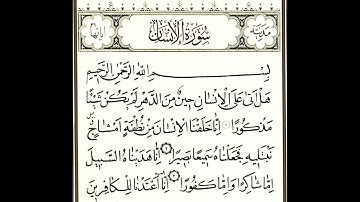 مدنية سورة الإنسان آياتها
بِسْمِ اللَّهِ الرَّحْمَٰنِ الرَّحِيمِ
هَلْ أَتَىٰ عَلَى الْإِنْسَانِ حِينٌ مِنَ الدَّهْرِ لَمْ يَكُنْ شَيْئًا
مَذْكُورًا إِنَّا خَلَقْنَا الْإِنْسَانَ مِنْ نُطْفَةٍ أَمْشَاجٍ
نَبْتَلِيهِ فَجَعَلْنَاهُ سَمِيعًا بَصِيرًا إِنَّا هَدَيْنَاهُ السَّبِيلَ
إِمَّا شَاكِرًا وَإِمَّا كَفُورًا إِنَّا أَعْتَدْنَا لِلْكَافِرِينَ